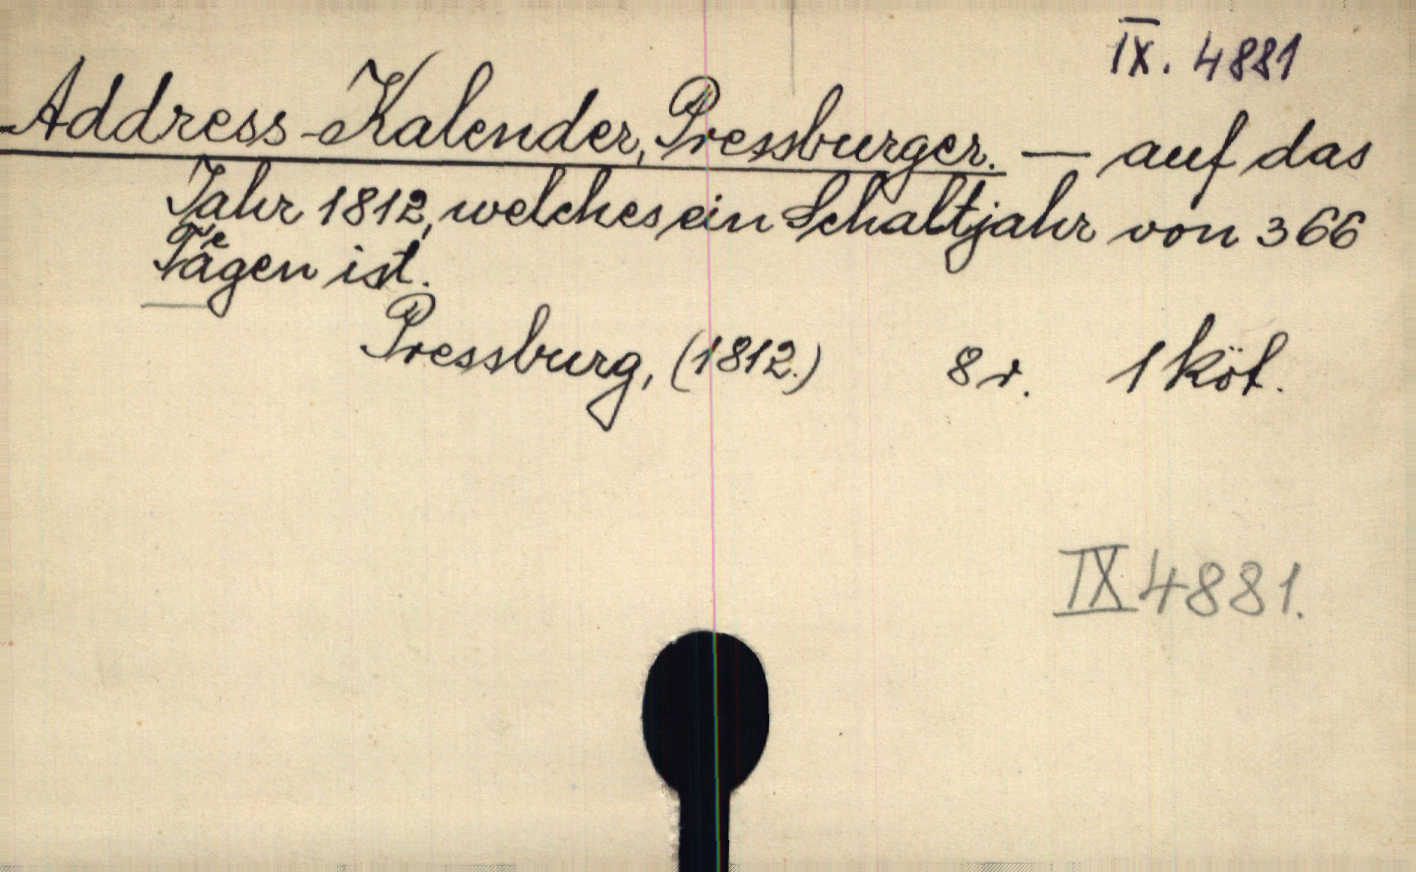 IX. 4881
Address-Kalender, Pressburger. — auf das
Jahr 1812, welches ein Schaltjahr von 366
Taͤgen ist.
Pressburg, (1812.) 8 r. 1 köt.
IX 4881.